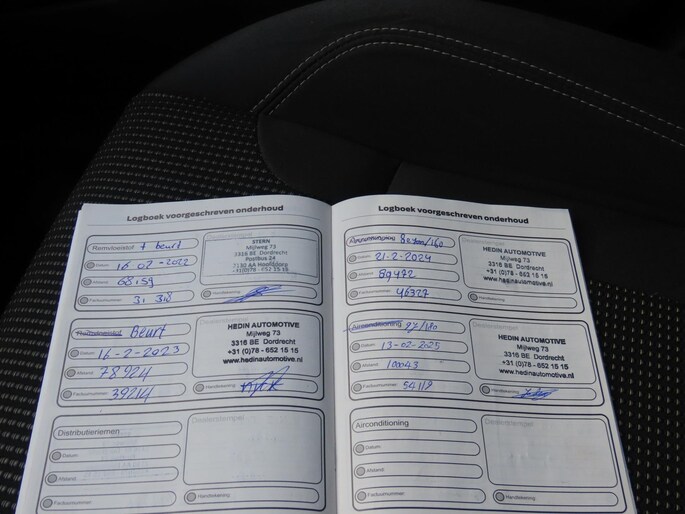 Logboek voorgeschreven onderhoud
Remvloeistof + beurt
Datum 16-02-2022
Afstand
Factuurnummer
STERN
Mijlweg 73
3316 BE Dordrecht
Postbus 24
2130 AA Hoofddorp
+31(0)78 - 652 15 15
Handtekening
Remvloeistof Beurt
Datum 16-2-2023
Afstand 78924
Factuurnummer 39214
Dealerstempel
HEDIN AUTOMOTIVE
Mijlweg 73
3316 BE Dordrecht
+31 (0)78 - 652 15 15
www.hedinautomotive.nl
Handtekening
Distributieriemen
Datum
Afstand
Factuurnummer
Dealerstempel
Handtekening
Logboek voorgeschreven onderhoud
Datum 21-2-2024
Afstand 89472
Factuurnummer 46327
HEDIN AUTOMOTIVE
Mijlweg 73
3316 BE Dordrecht
+31 (0)78 - 652 15 15
www.hedinautomotive.nl
Handtekening
Airconditioning
Datum 13-02-2025
Afstand 100043
Factuurnummer 54119
Dealerstempel
HEDIN AUTOMOTIVE
Mijlweg 73
3316 BE Dordrecht
+31 (0)78 - 652 15 15
www.hedinautomotive.nl
Handtekening
Airconditioning
Datum
Afstand
Factuurnummer
Dealerstempel
Handtekening